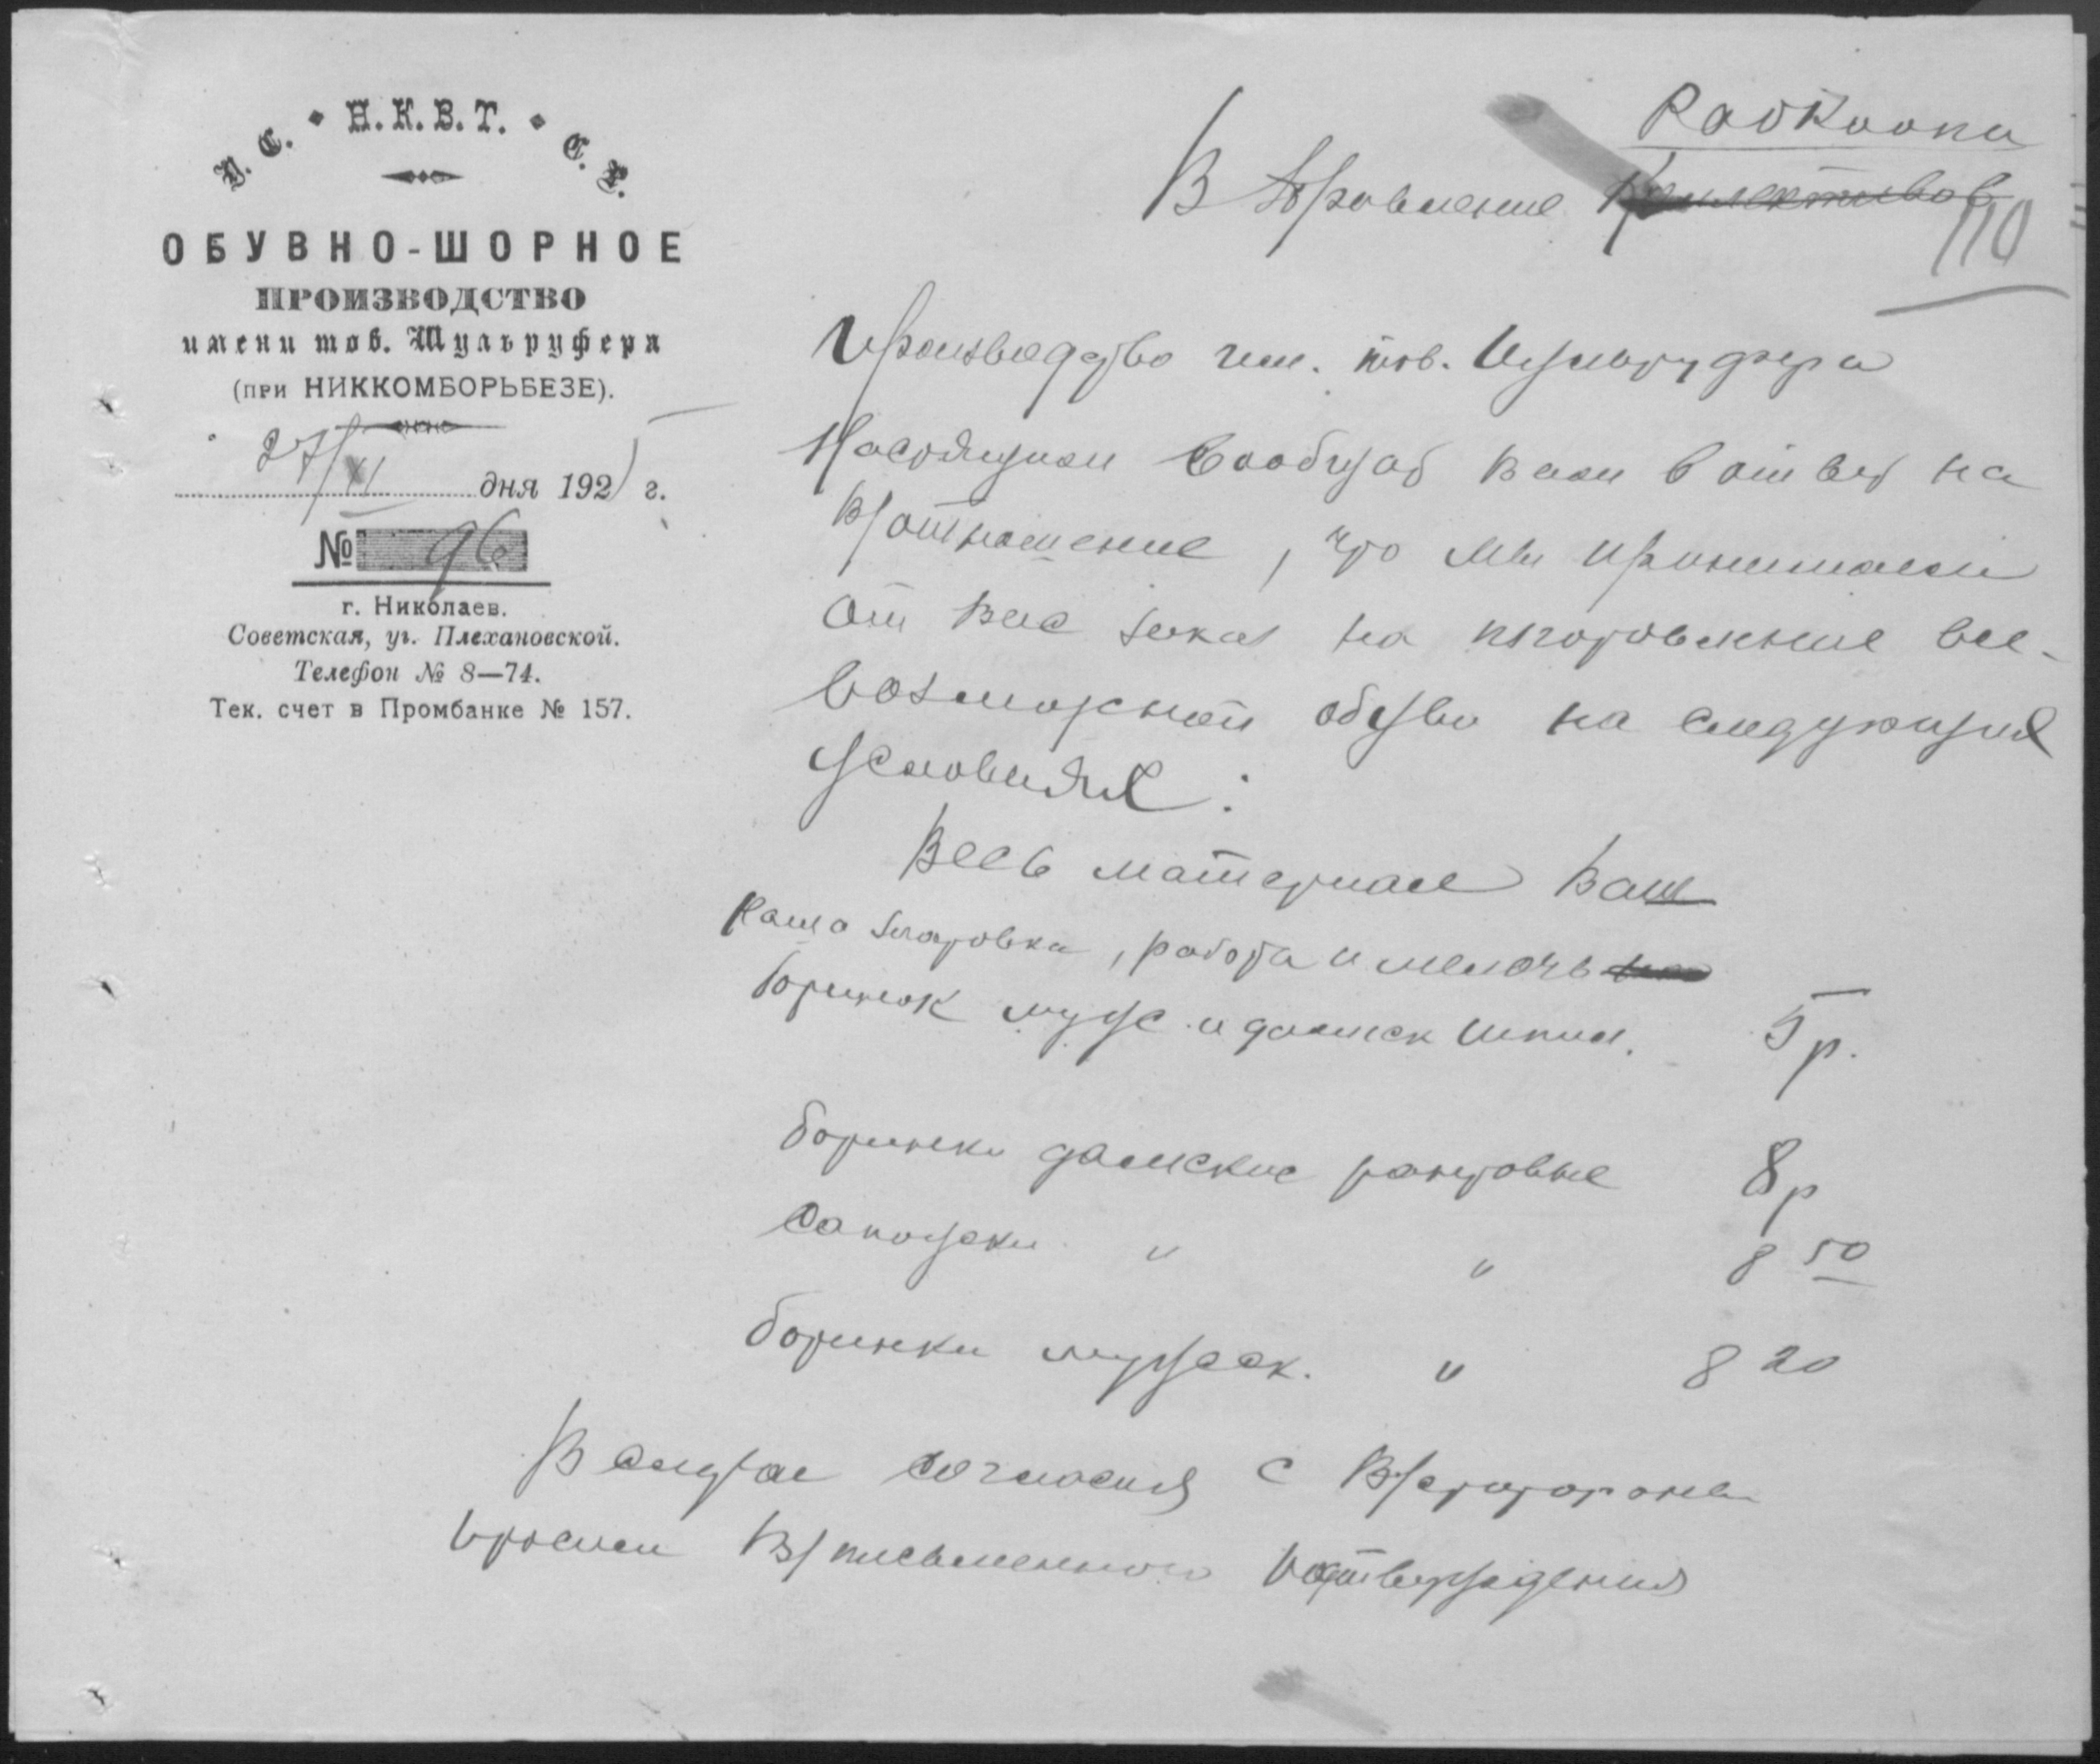 У. С. • Н.К.В.Т. • С. Р.
ОБУВНО-ШОРНОЕ
ПРОИЗВОДСТВО
имени тов. Шульруфера
(при НИККОМБОРЬБЕЗЕ).
27/XI дня 192 г.
№ 96
г. Николаев.
Советская, уг. Плехановской.
Телефон № 8—74.
Тек. счет в Промбанке № 157.
Рабкоопа
В Правление Коллективов
110
Производство им. тов. Шульруфера
Настоящим сообщаем Вам в ответ на
В/отношение, что мы принимаем
от Вас заказ на изготовление все-
возможной обуви на следующих
условиях:
Весь материал Ваш
Наша заготовка, работа и мелочь
Ботинок мужс. и дамск шпил. 5 р.
ботинки дамские рантовые 8 р
сапожки " " 8 50
ботинки мужск. " 8 20
В случае согласия с В/стороны
просим В/письменного подтверждения